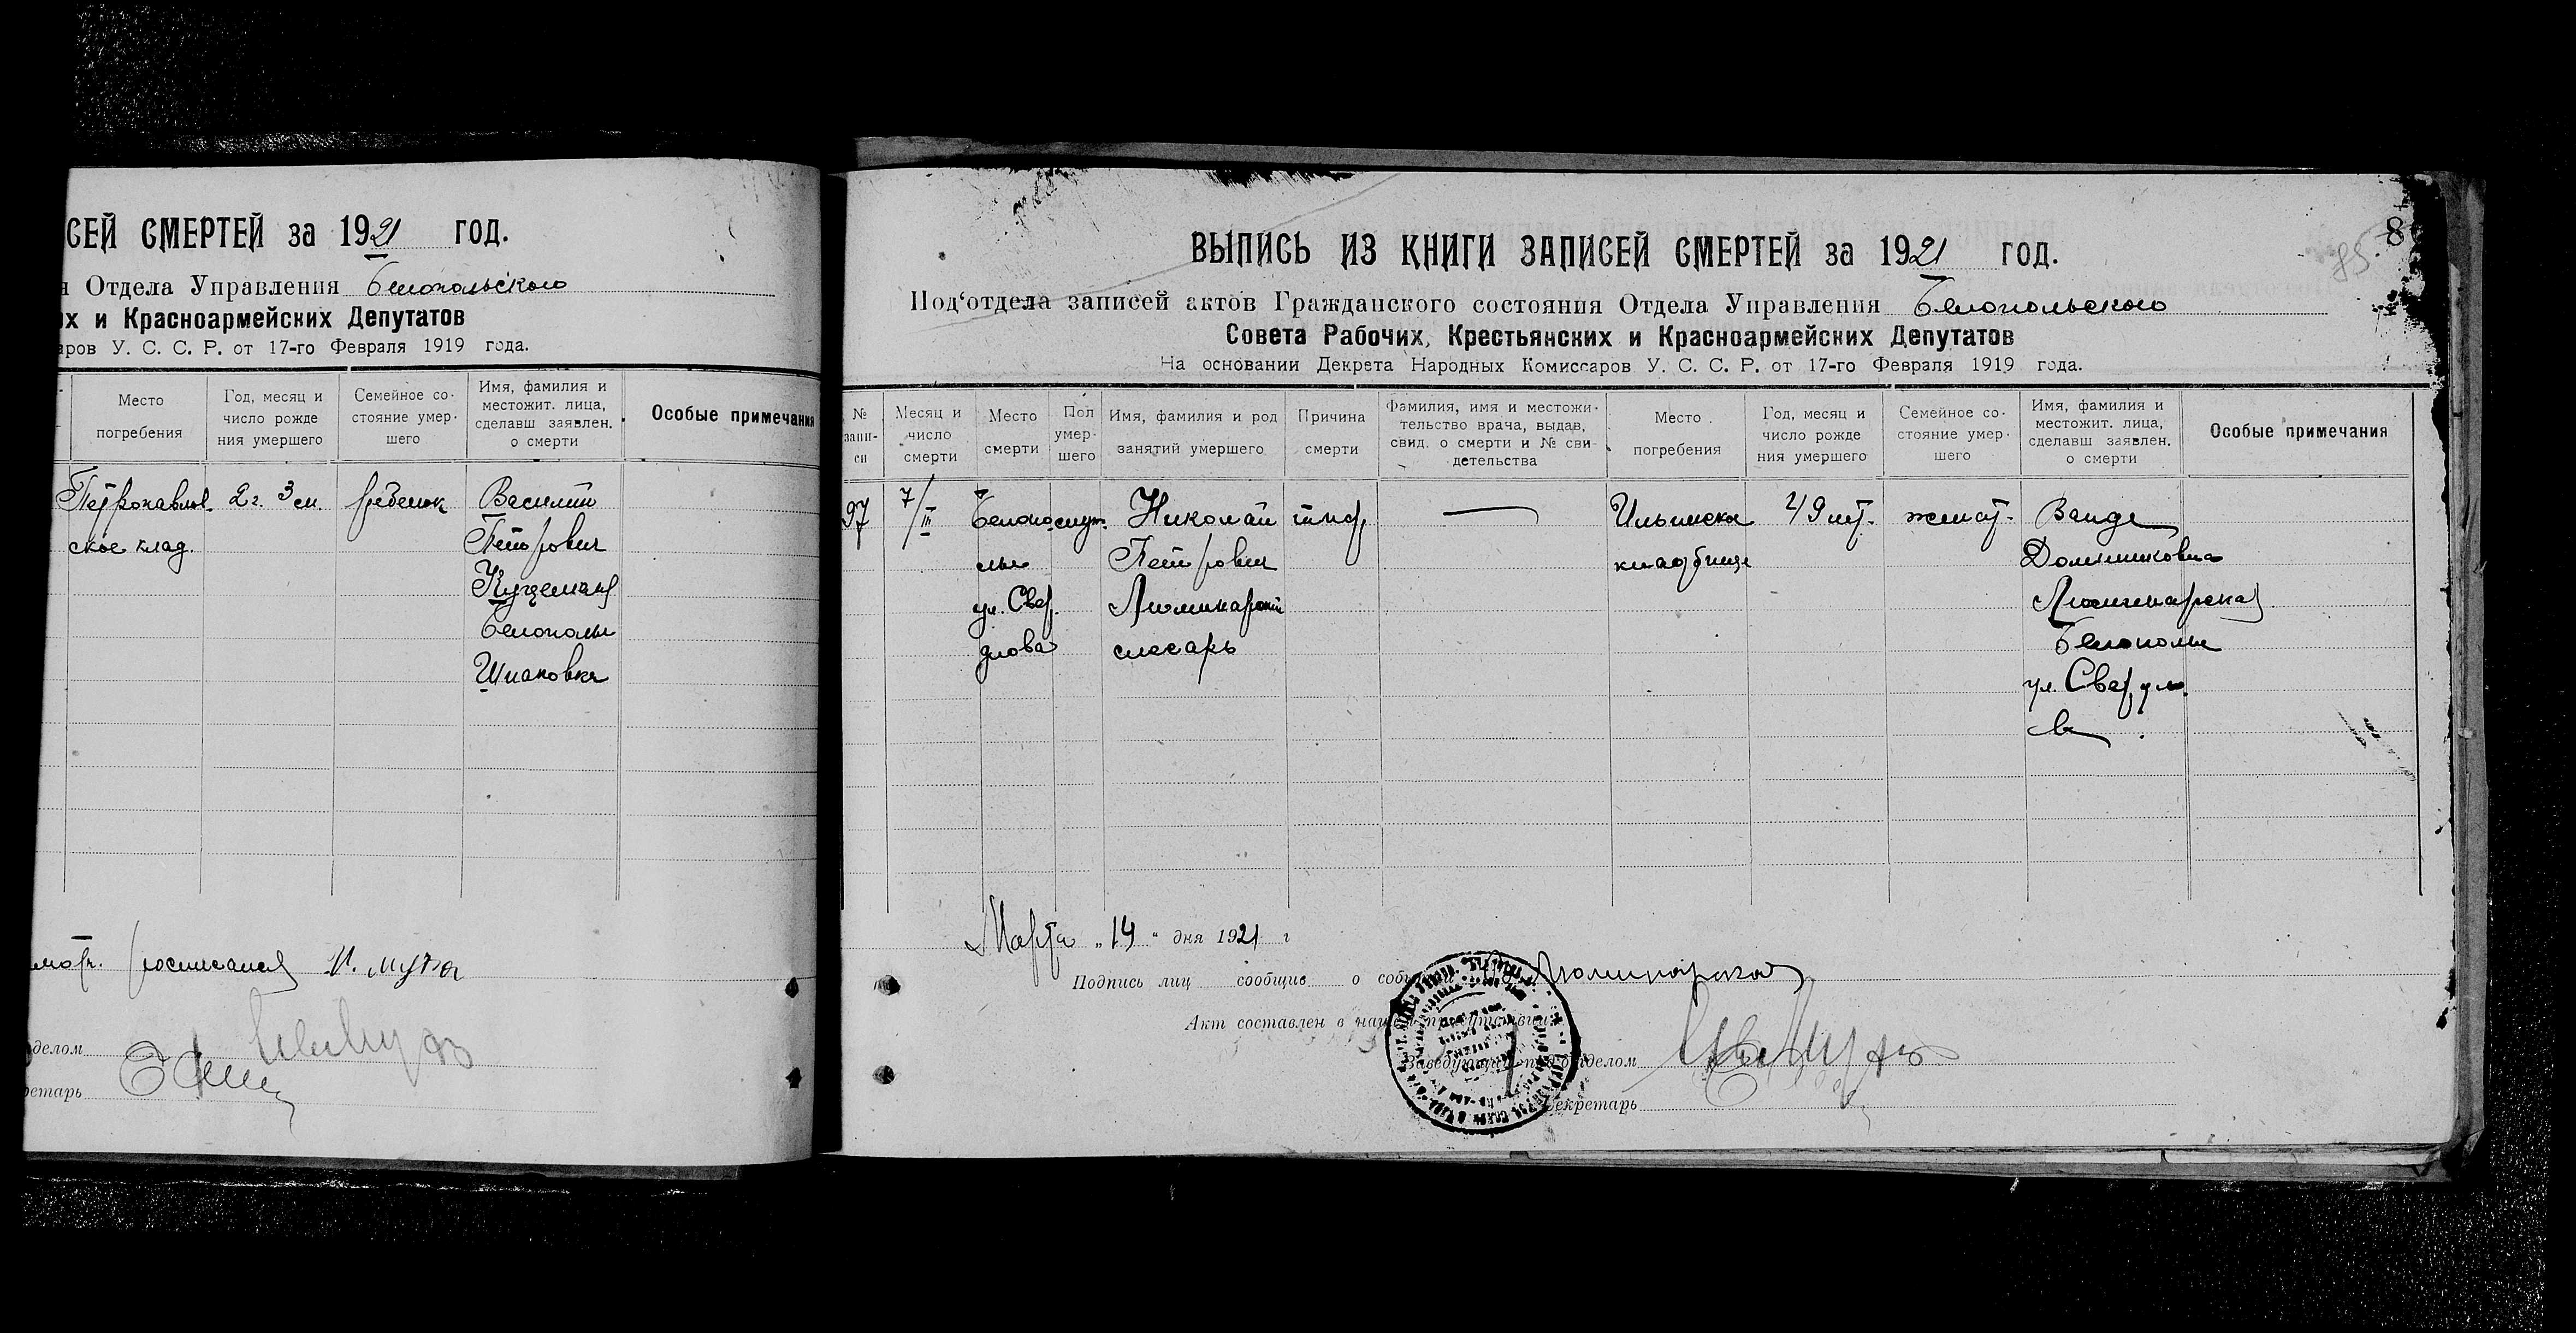 СЕЙ СМЕРТЕЙ за 1921 год.
Отдела Управления Белопольского
их и Красноармейских Депутатов
аров У. С. С. Р. от 17-го Февраля 1919 года.
Место погребения
Год, месяц и число рожде ния умершего
Семейное со- стояние умер- шего
Имя, фамилия и местожит. лица, сделавш заявлен. о смерти
Особые примечания
Петропавлов- 2 г. 3 м. ребенок Василий
ское клад. Петрович
Белополье
Шпаковка
делом
ретарь
8
85
ВЫПИСЬ ИЗ КНИГИ ЗАПИСЕЙ СМЕРТЕЙ за 1921 год.
Под‘отдела записей актов Гражданского состояния Отдела Управления Белопольского
Совета Рабочих, Крестьянских и Красноармейских Депутатов
На основании Декрета Народных Комиссаров У. С. С. Р. от 17-го Февраля 1919 года.
№ запи- си
Месяц и число смерти
Место смерти
Пол умер- шего
Имя, фамилия и род занятий умершего
Причина смерти
Фамилия, имя и местожи- тельство врача, выдав, свид. о смерти и № сви- детельства
Место погребения
Год, месяц и число рожде ния умершего
Семейное со- стояние умер- шего
Имя, фамилия и местожит. лица, сделавш заявлен. о смерти
Особые примечания
97 7/III Белопо муж. Николай тиф Ильинское 49 лет. женат. Ванда
лье Петрович кладбище Доминиковна
ул. Свер
длова слесарь Белополье
ул. Свердло
ва
Марта „14“ дня 1921 г
Подпись лиц сообщив о собы
Акт составлен в нашем присутствии
Заведующий под‘отделом
Секретарь